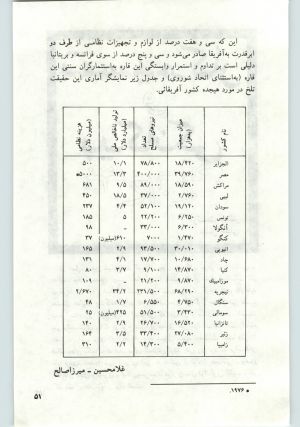 این که سی و هفت درصد از لوازم و تجهیزات نظامی از طرف دو
ابرقدرت به‌آفریقا صادر می‌شود و سی و پنج درصد از سوی فرانسه و بریتانیا
دلیلی است بر تداوم و استمرار وابستگی این قاره به‌استثمارگران سنتی این
قاره (به‌استثنای اتحاد شوروی) و جدول زیر نمایشگر آماری این حقیقت
تلخ در مورد هیجده کشور آفریقائی.
نام کشور میزان جمعیت (به‌هزار) نیروهای مسلح تعداد تولید ناخالص ملی (میلیارد دلار) هزینه نظامی (میلیون دلار)
الجزایر ۱۸/۴۲۰ ۷۸/۸۰۰ ۱۰/۱ ۵۰۰
مصر ۳۹/۷۶۰ ۴۰۰/۰۰۰ ۱۳/۳ ۵۰۰۰
مراکش ۱۸/۵۹۰ ۸۹/۰۰۰ ۹/۵ ۶۸۱
لیبی ۲/۷۶۰ ۳۷/۰۰۰ ۱۸/۵ ۴۵۰
سودان ۱۹/۱۲۰ ۵۲/۱۰۰ ۴/۴ ۲۳۷
تونس ۶/۲۵۰ ۲۲/۲۰۰ ۵ ۱۸۵
آنگولا ۶/۳۰۰ ۳۳/۰۰۰ - ۹۸
کنگو ۱/۴۷۰ ۷۰۰۰ ۶۱۰میلیون ۳۷
اتیوپی ۳۰/۰۱۰ ۹۳/۵۰۰ ۲/۹ ۱۶۵
چاد ۱۰/۶۸۰ ۱۷/۷۰۰ ۴/۱ ۱۳۱
کنیا ۱۴/۸۷۰ ۹/۱۰۰ ۳/۷ ۸۰
موزامبیک ۹/۸۷۰ ۲۱/۲۰۰ - ۱۰۹
نیجریه ۶۸/۲۹۰ ۲۳۱/۵۰۰ ۳۴/۲ ۲/۶۷۰
سنگال ۴/۷۵۰ ۶/۵۵۰ ۱/۷ ۴۸
سومالی ۳/۴۳۰ ۵۱/۵۰۰ ۴۲۵میلیون ۲۵
تانزانیا ۱۶/۵۲۰ ۲۶/۷۰۰ ۲/۹ ۱۴۰
زئیر ۲۷/۰۸۰ ۳۳/۴۰۰ ۳/۵ ۱۶۴
زامبیا ۵/۴۰۰ ۱۴/۳۰۰ ۲/۲ ۳۱۰
غلامحسین - میرزاصالح
* ۱۹۷۶.
۵۱